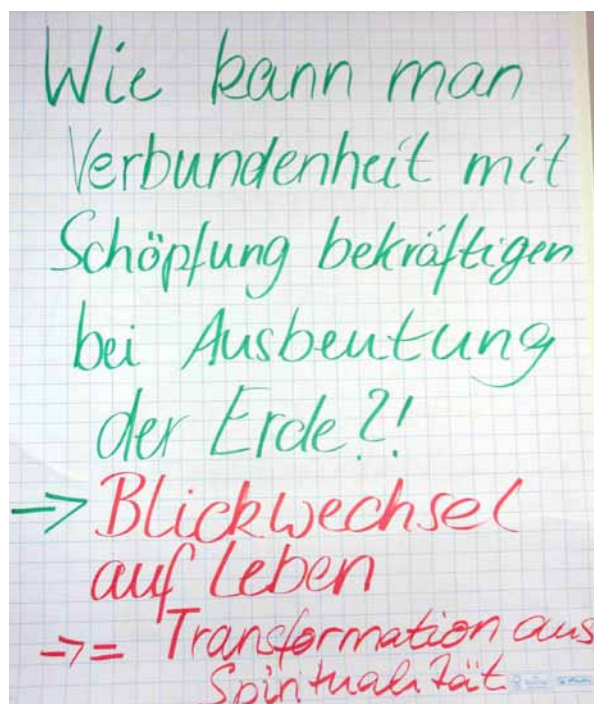 Wie kann man
Verbundenheit mit
Schöpfung bekräftigen
bei Ausbeutung
der Erde?!
-> Blickwechsel
auf Leben
->= Transformation aus
Spiritualität